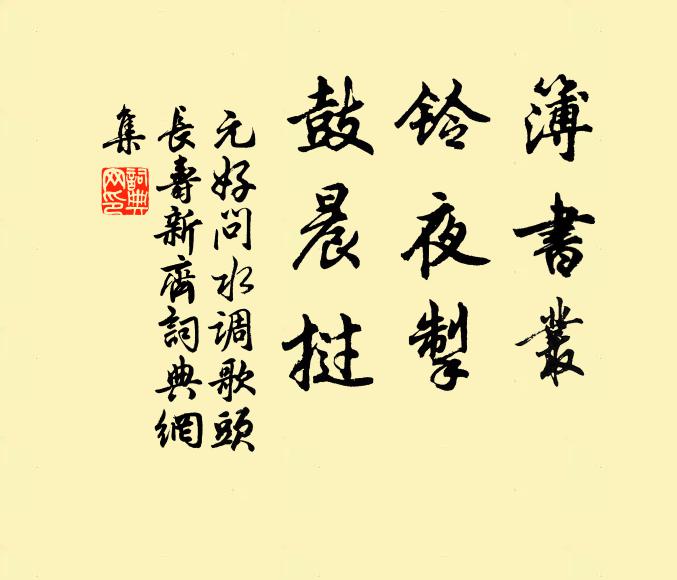 簿書叢
鈴夜掣
鼓晨撾
元好問水调歌頭
長壽新齋詞典網
集
詞典網印